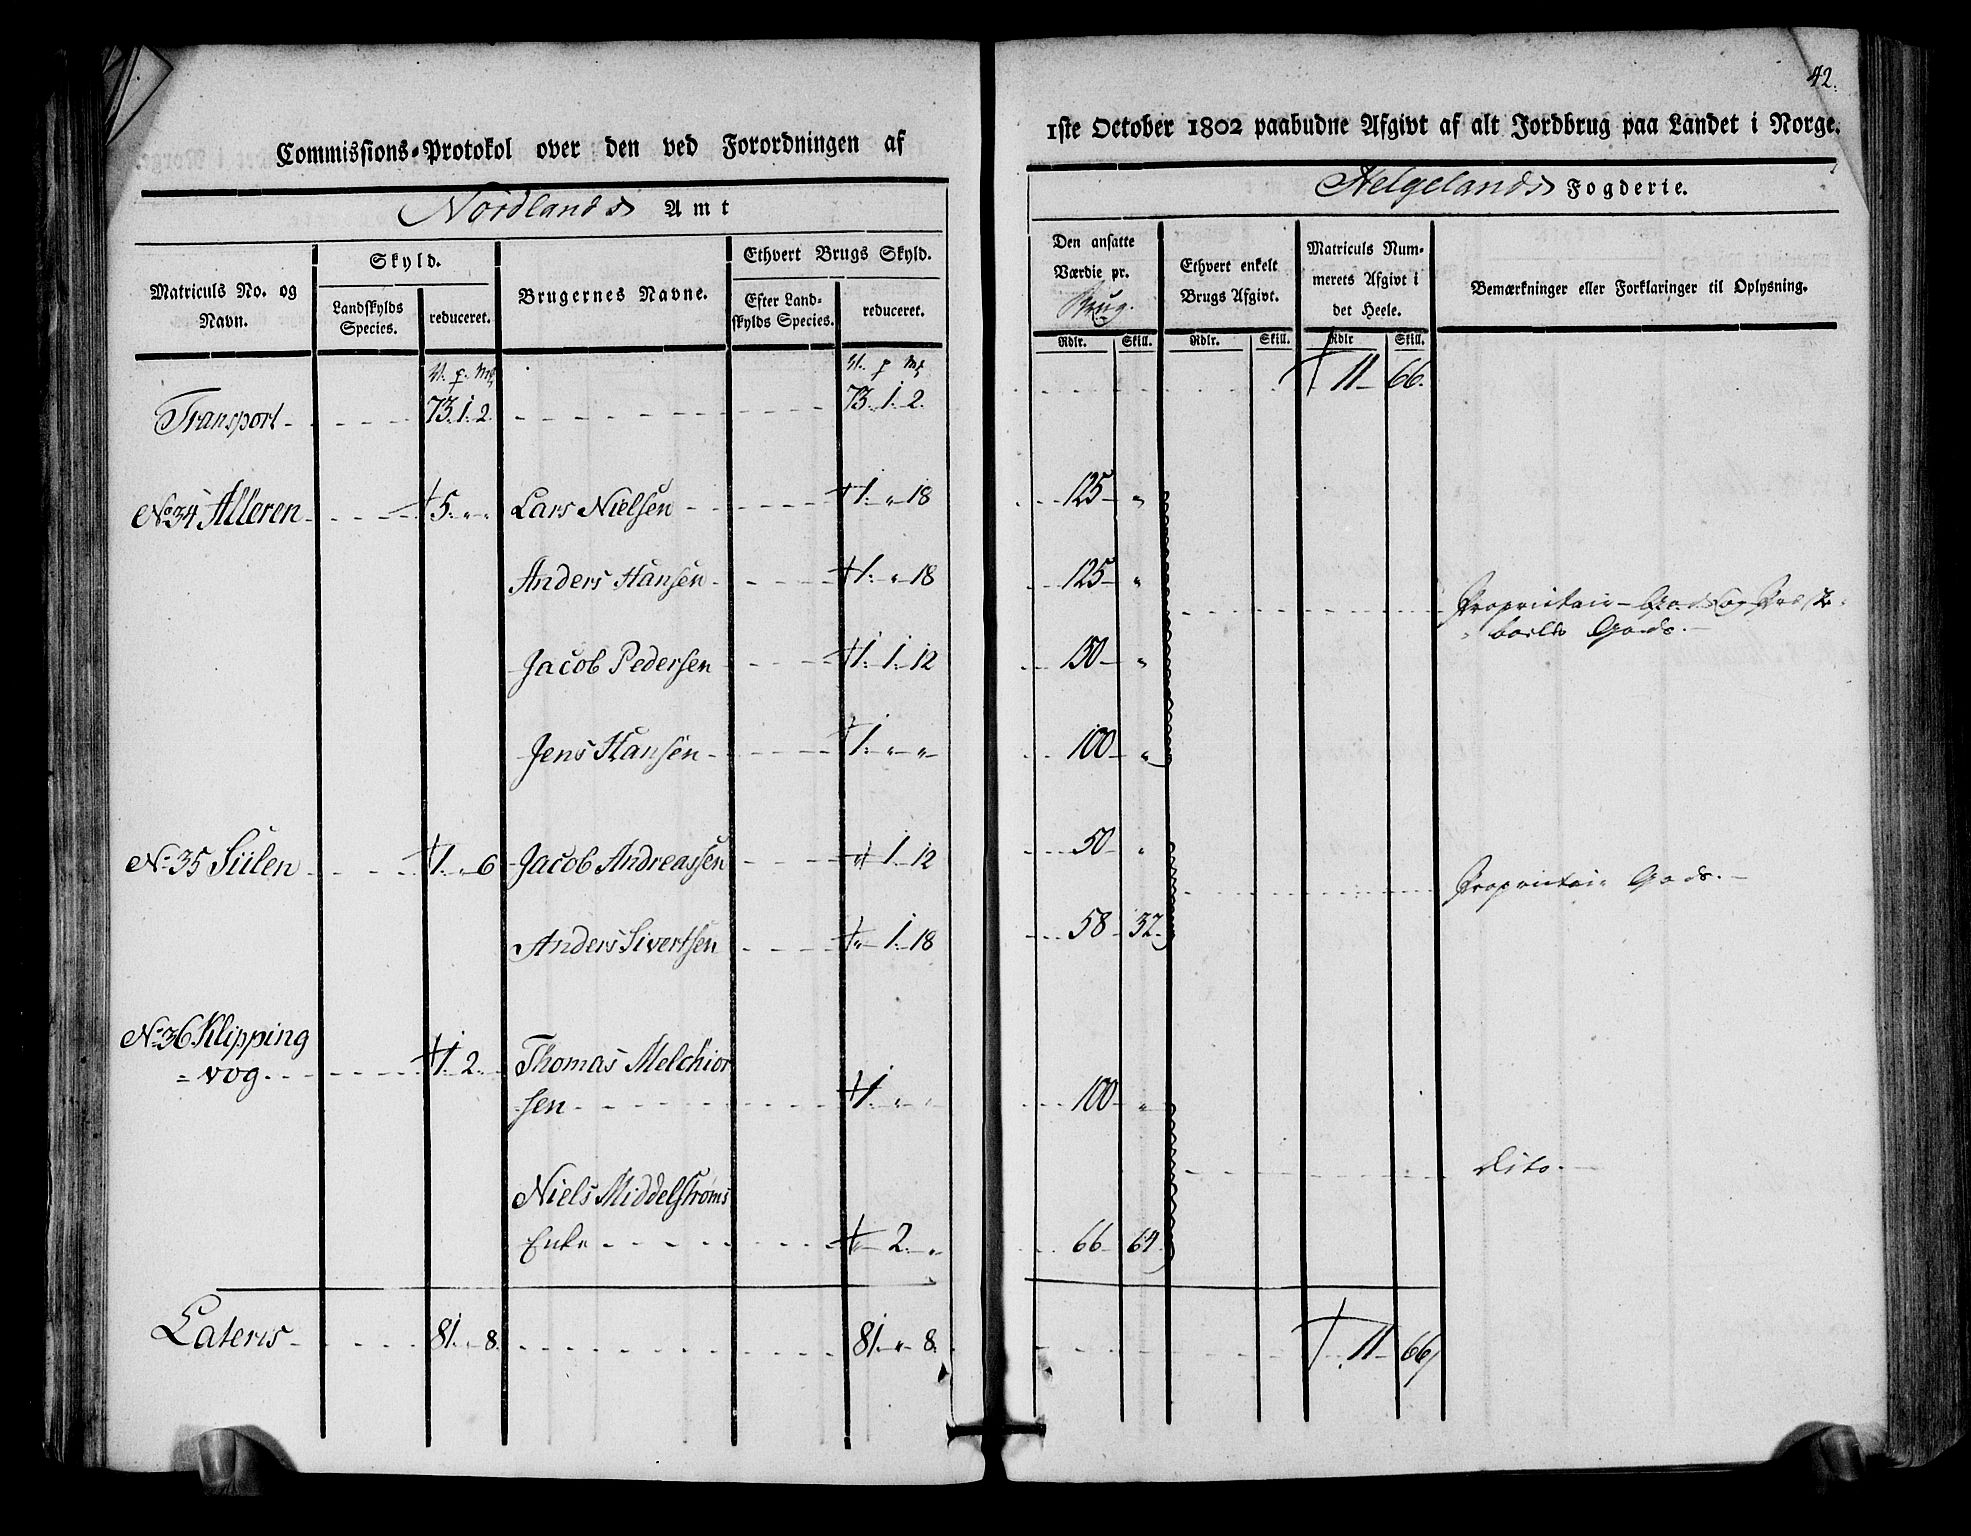 42.
Commissions-Protokol over den ved Forordningen af
1ste October 1802 paabudne Afgivt af alt Jordbrug paa Landet i Norge.
Nordlands Amt
Helgelands Fogderie.
Matriculs No. og Navn.
Skyld.
Landskylds Species.
reduceret.
Brugernes Navne.
Ethvert Brugs Skyld.
Efter Landskylds Species.
reduceret.
Den ansatte Værdie pr. Brug.
Ethvert enkelt Brugs Afgivt.
Matriculs Nummerets Afgivt i det Heele.
Bemærkninger eller Forklaringer til Oplysning.
Rdlr. Skill. Rdlr. Skill. Rdlr Skill.
V. p. Mk V. p Mk
Transport 73. 1. 2 73. 1. 2. 11 66.
No 34 Alleren 5. " " Lars Nielsen 1. " 18 125 "
Anders Hansen 1. " 18 125 "
Proprietair-Gods og Præste-
boelds Gods.
Jacob Pedersen 1. 1. 12 150 "
Jens Hansen 1. " " 100 "
No 35 Sülen 1. " 6 Jacob Andreassen " 1. 12 50 "
Proprietair Gods.
Anders Sivertsen " 1. 18 58 32.
No 36 Klipping
= vog. 1. 2. " Thomas Melchior
sen 1. " " 100 "
Dito.
Niels Middelstrøms
Enke " 2. " 66 64
Lateris 81. " 8. 81. " 8. 11 66